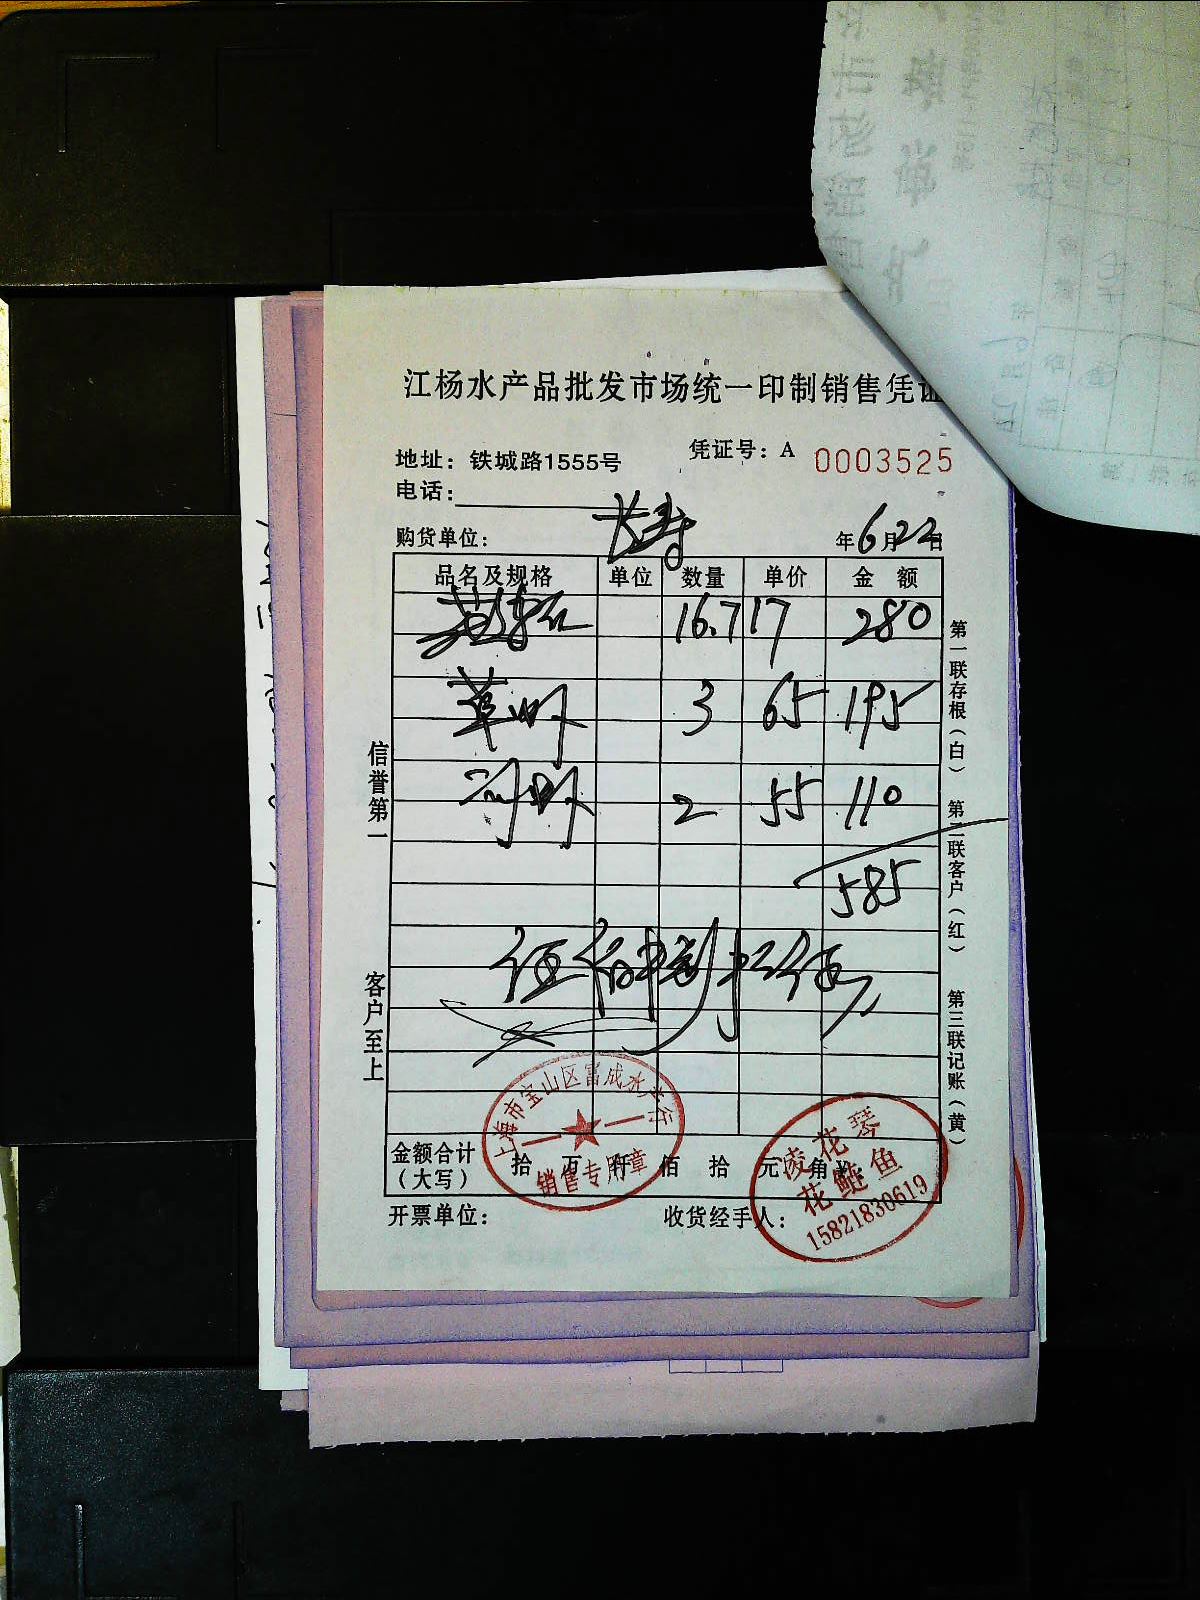 江杨水产品批发市场统一印制销售凭证
地址：铁城路1555号
凭证号：A 0003525
电话：
购货单位：长寿
年6月22日
品名及规格 单位 数量 单价 金额
16.7 17 280
草虾 3 65 195
河虾 2 55 110
585
伍佰捌拾伍
信誉第一
客户至上
第一联存根（白）
第二联客户（红）
第三联记账（黄）
金额合计（大写） 拾 万 仟 佰 拾 元 角
开票单位：
收货经手人：
上海市宝山区富成水产行
销售专用章
凌花琴
花鲢鱼
15821830619